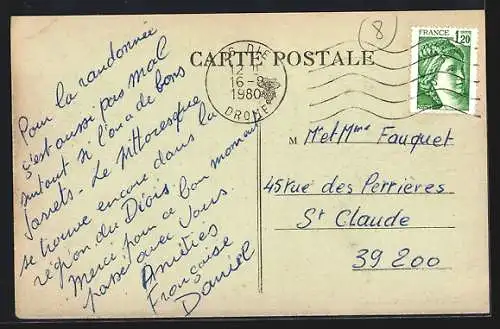 8
FRANCE
1,20
CARTE POSTALE
26 DIE
16-8
1980
DROME
Pour la randonnée
c'est aussi pas mal
surtout si l'on a de bons
jarrets - Le pittoresque
se trouve encore dans la
région du Diois.
Merci pour ce bon moment
passé avec vous.
Amitiés
Françoise
Daniel
M
Mr et Mme Fauquet
45 rue des Perrières
St Claude
39 200